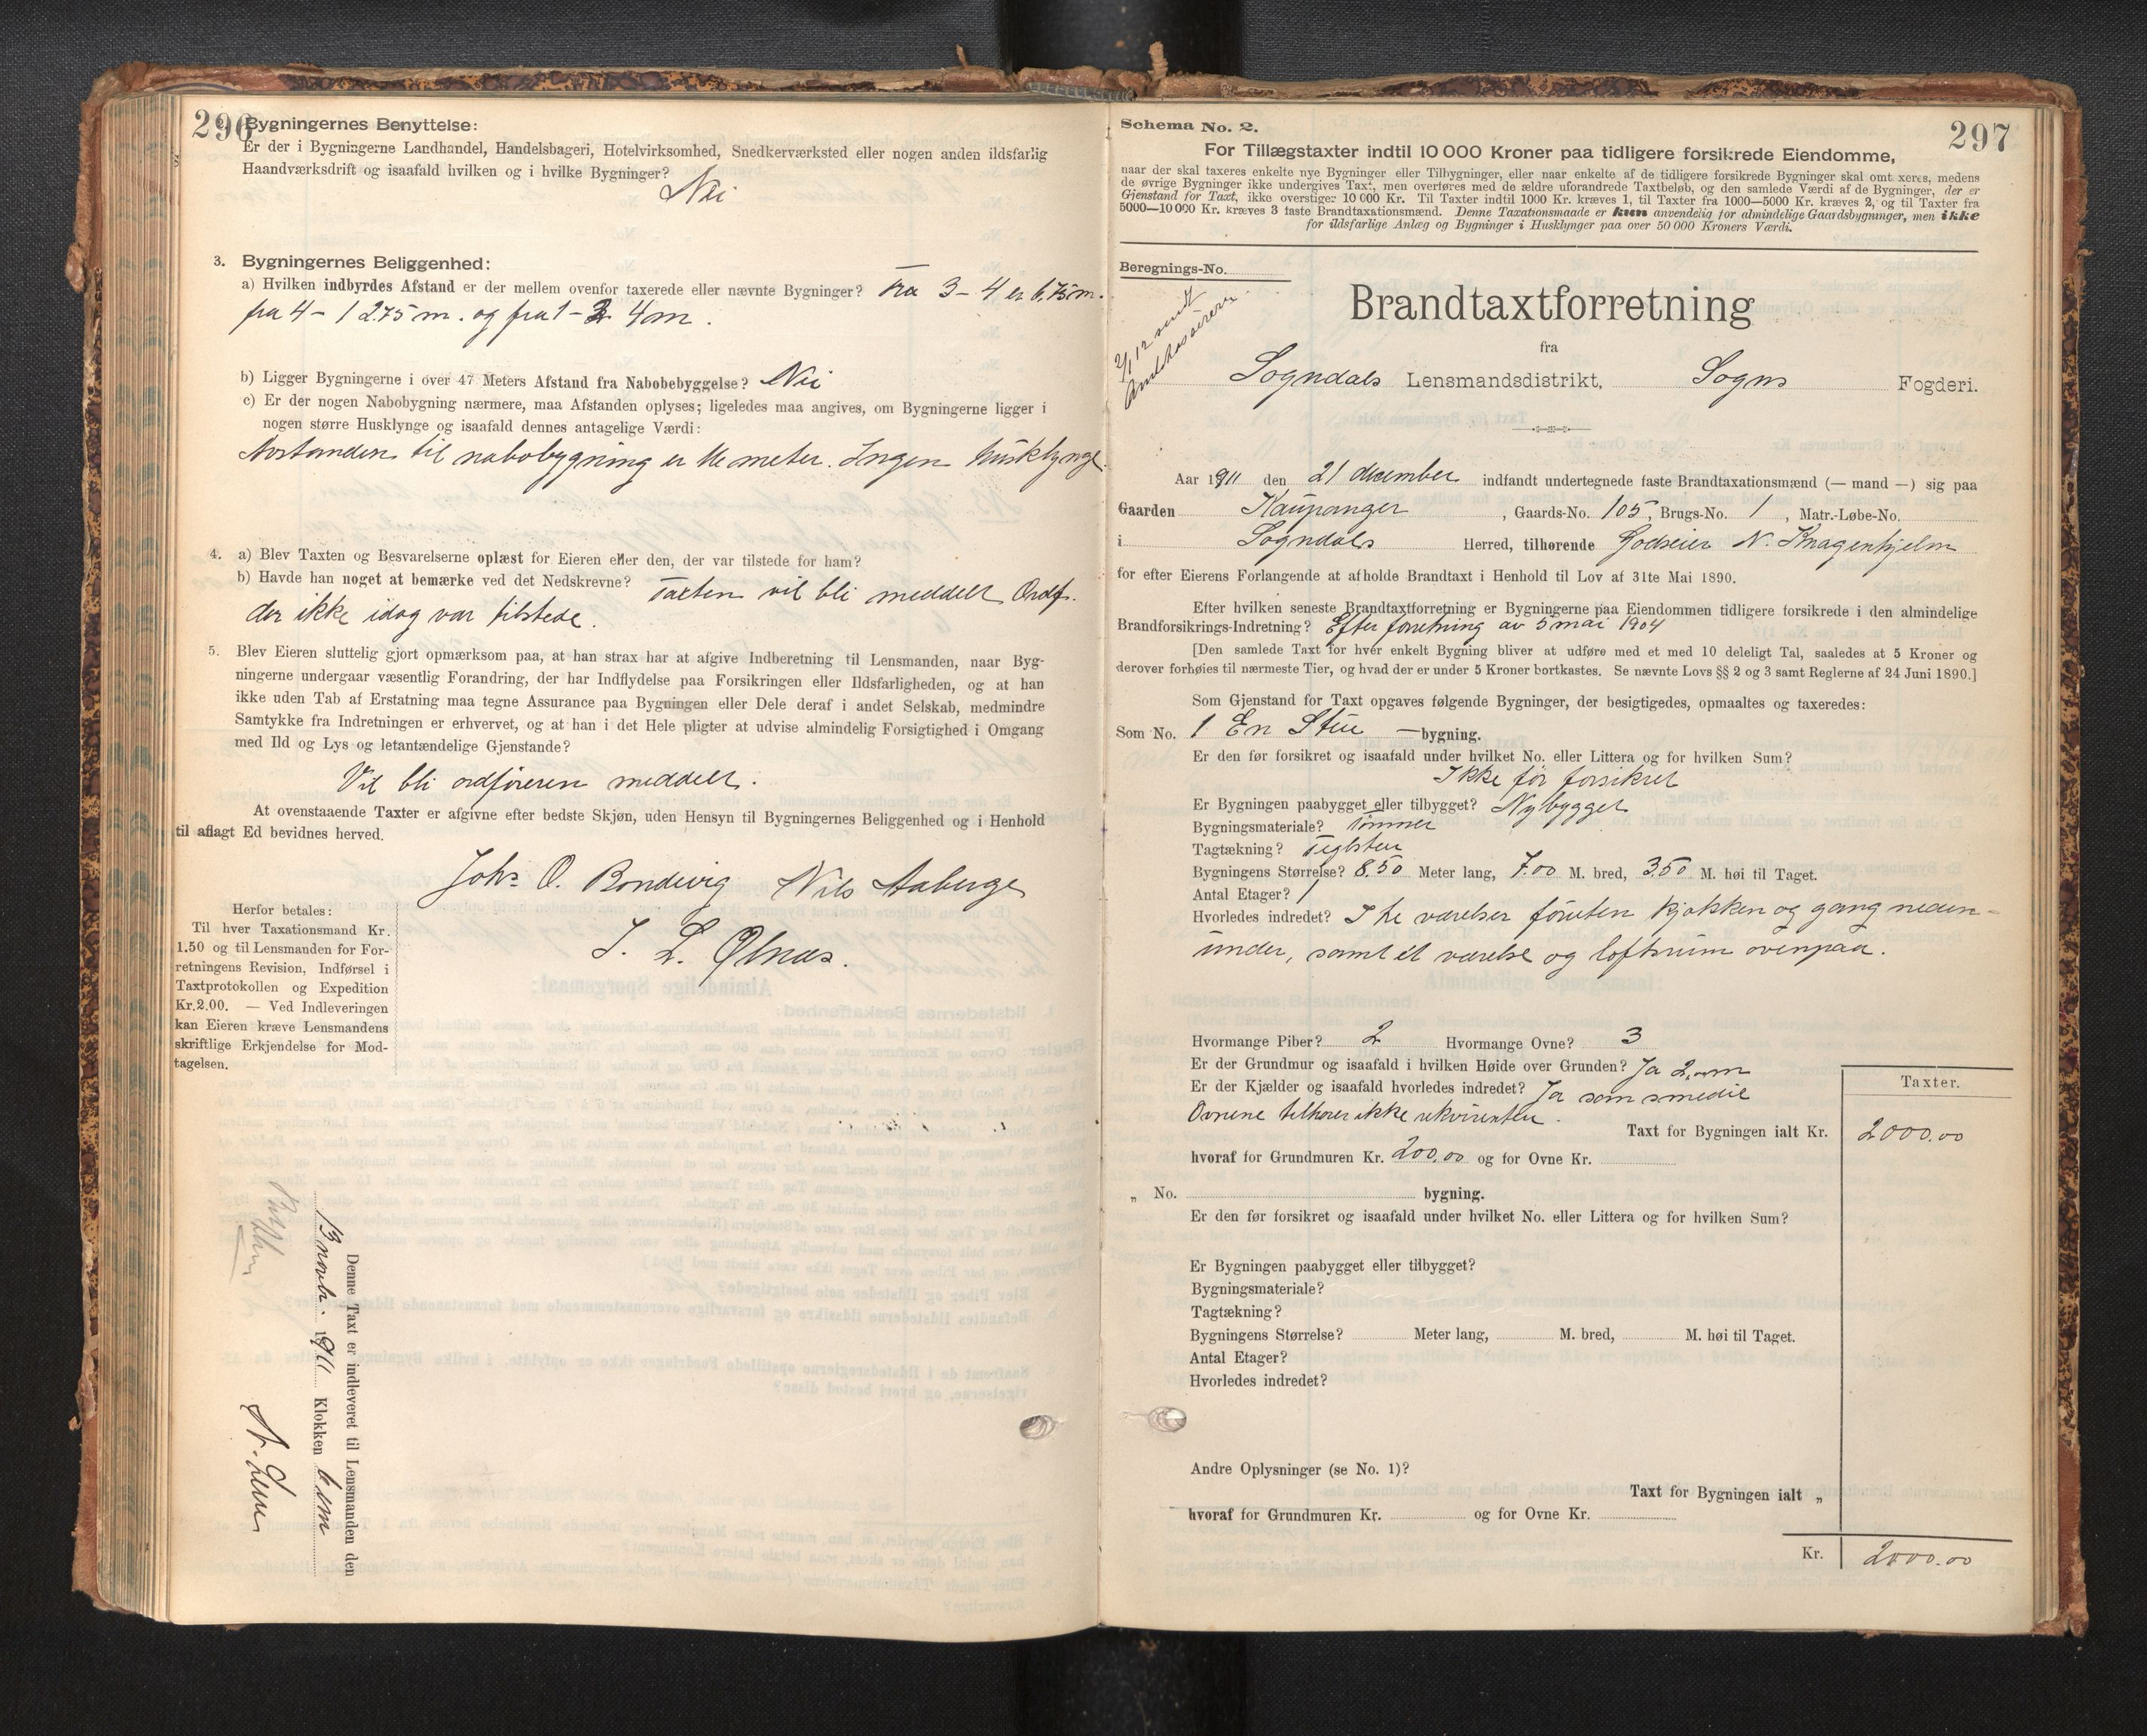 296
Bygningernes Benyttelse:
Er der i Bygningerne Landhandel, Handelsbageri, Hotelvirksomhed, Snedkerværksted eller nogen anden ildsfarlig
Haandværksdrift og isaafald hvilken og i hvilke Bygninger?
Nei
3. Bygningernes Beliggenhed:
a) Hvilken indbyrdes Afstand er der mellem ovenfor taxerede eller nævnte Bygninger? Fra 3 – 4 er 6.75 m.
fra 4 – 1 2.75 m. og fra 1 – 2 4 m.
b) Ligger Bygningerne i over 47 Meters Afstand fra Nabobebyggelse? Nei
c) Er der nogen Nabobygning nærmere, maa Afstanden oplyses; ligeledes maa angives, om Bygningerne ligger i
nogen større Husklynge og isaafald dennes antagelige Værdi:
Avstanden til nabobygning er 16 meter. Ingen husklynge
4. a) Blev Taxten og Besvarelserne oplæst for Eieren eller den, der var tilstede for ham?
b) Havde han noget at bemærke ved det Nedskrevne? Taxten vil bli meddelt Ordf.
der ikke idag var tilstede.
5. Blev Eieren sluttelig gjort opmærksom paa, at han strax har at afgive Indberetning til Lensmanden, naar Byg-
ningerne undergaar væsentlig Forandring, der har Indflydelse paa Forsikringen eller Ildsfarligheden, og at han
ikke uden Tab af Erstatning maa tegne Assurance paa Bygningen eller Dele deraf i andet Selskab, medmindre
Samtykke fra Indretningen er erhvervet, og at han i det Hele pligter at udvise almindelig Forsigtighed i Omgang
med Ild og Lys og letantændelige Gjenstande?
Vil bli ordføreren meddelt.
At ovenstaaende Taxter er afgivne efter bedste Skjøn, uden Hensyn til Bygningernes Beliggenhed og i Henhold
til aflagt Ed bevidnes herved.
Johs O. Bondevig Nils Aaberge
J. L. Ølnæs.
Herfor betales:
Til hver Taxationsmand Kr.
1.50 og til Lensmanden for For-
retningens Revision, Indførsel i
Taxtprotokollen og Expedition
Kr. 2.00. — Ved Indleveringen
kan Eieren kræve Lensmandens
skriftlige Erkjendelse for Mod-
tagelsen.
Denne Taxt er indleveret til Lensmanden den
13 novbr. 1911 Klokken 6 em
297
Schema No. 2.
For Tillægstaxter indtil 10 000 Kroner paa tidligere forsikrede Eiendomme,
naar der skal taxeres enkelte nye Bygninger eller Tilbygninger, eller naar enkelte af de tidligere forsikrede Bygninger skal omt xeres, medens
de øvrige Bygninger ikke undergives Taxt, men overføres med de ældre uforandrede Taxtbeløb, og den samlede Værdi af de Bygninger, der er
Gjenstand for Taxt, ikke overstiger 10 000 Kr. Til Taxter indtil 1000 Kr. kræves 1, til Taxter fra 1000—5000 Kr. kræves 2, og til Taxter fra
5000—10 000 Kr. kræves 3 faste Brandtaxationsmænd. Denne Taxationsmaade er kun anvendelig for almindelige Gaardsbygninger, men ikke
for ildsfarlige Anlæg og Bygninger i Husklynger paa over 50 000 Kroners Værdi.
Beregnings-No.
2/1 12 sendt
Amtskassereren.
Brandtaxtforretning
fra
Sogndals Lensmandsdistrikt, Sogns Fogderi.
Aar 1911 den 21 december indfandt undertegnede faste Brandtaxationsmænd (— mand —) sig paa
Gaarden Kaupanger, Gaards-No. 105, Brugs-No. 1, Matr.-Løbe-No.
i Sogndals Herred, tilhørende Godseier N. Knagenhjelm
for efter Eierens Forlangende at afholde Brandtaxt i Henhold til Lov af 31te Mai 1890.
Efter hvilken seneste Brandtaxtforretning er Bygningerne paa Eiendommen tidligere forsikrede i den almindelige
Brandforsikrings-Indretning? Efter forretning av 5 mai 1904
[Den samlede Taxt for hver enkelt Bygning bliver at udføre med et med 10 deleligt Tal, saaledes at 5 Kroner og
derover forhøies til nærmeste Tier, og hvad der er under 5 Kroner bortkastes. Se nævnte Lovs §§ 2 og 3 samt Reglerne af 24 Juni 1890.]
Som Gjenstand for Taxt opgaves følgende Bygninger, der besigtigedes, opmaaltes og taxeredes:
Som No. 1 En Stue — bygning.
Er den før forsikret og isaafald under hvilket No. eller Littera og for hvilken Sum?
Ikke før forsikret
Er Bygningen paabygget eller tilbygget? Nybygget
Bygningsmateriale? Tømmer
Tagtækning? Teglsten
Bygningens Størrelse? 8.50 Meter lang, 7.00 M. bred, 3.50 M. høi til Taget.
Antal Etager? 1
Hvorledes indredet? I tre værelser foruten kjøkken og gang neden-
under, samt et værelse og loftsrum ovenpaa.
Hvormange Piber? 2 Hvormange Ovne? 3
Er der Grundmur og isaafald i hvilken Høide over Grunden? Ja 2,00 m
Er der Kjælder og isaafald hvorledes indredet? Ja som smedie
Ovnene tilhører ikke rekvirenten.
Taxter.
Taxt for Bygningen ialt Kr. 2000.00
hvoraf for Grundmuren Kr. 200.00 og for Ovne Kr.
„ No. bygning.
Er den før forsikret og isaafald under hvilket No. eller Littera og for hvilken Sum?
Er Bygningen paabygget eller tilbygget?
Bygningsmateriale?
Tagtækning?
Bygningens Størrelse? Meter lang, M. bred, M. høi til Taget.
Antal Etager?
Hvorledes indredet?
Andre Oplysninger (se No. 1)?
Taxt for Bygningen ialt „
hvoraf for Grundmuren Kr. og for Ovne Kr.
Kr. 2000.00